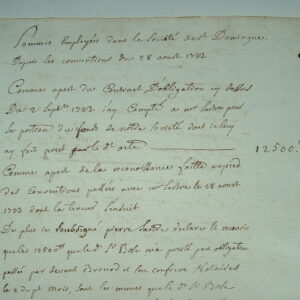 Sommes Employées dans la Société de St Domingue.
Depuis les conventions du 28 aoust 1783.
Comme apert du Contract D'obligation cy Dessus
Du 2 Septbre 1783 j'ay Compté a mr pour
la portion du fond de notre Société dont je luy
ay fait par le Sr 12500
Comme apert de la reconoissance faitte au pied
des Conventions passées avec mr le 28 aoust
1783 dont la teneur Ensuit
De plus je Soubsigné pierre declare et reconois
que les 12500 que le Sr Bosc m'a presté par obligation
passé par devant et son confrere Notaires
le 2 du pt Mois, sont les memes que le Sr Bosc